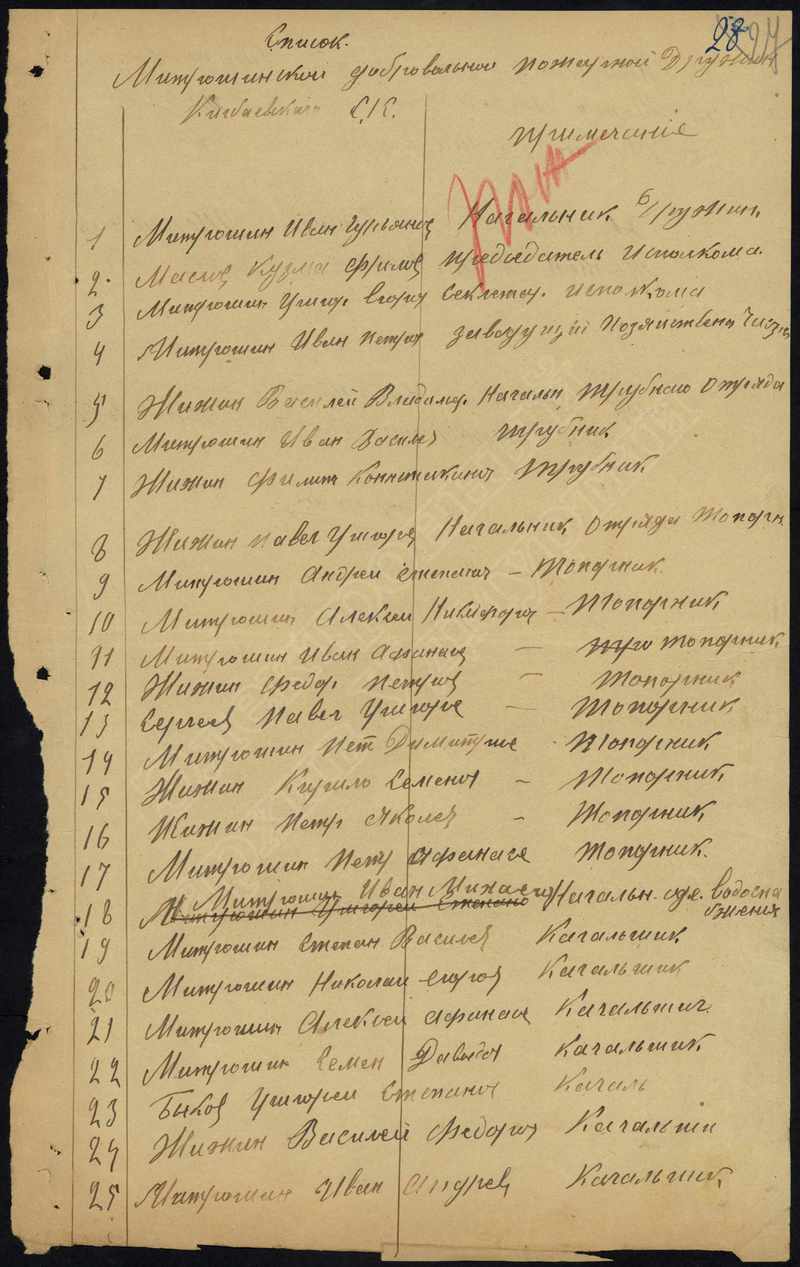 28 27
Список.
Митрюшинской добровольной пожарной Дружин
С.
примечание
1 Митрюшин Иван Гурьянов Начальник Дружин.
2. Маслов Кузма Филов председатель исполкома.
3 Митрюшин Григор Егоров секретар. исполкома
4 Митрюшин Иван Петров заведущий хозяйствен части
5 Жижин Василей Владимр. Начальн трубного отряда
6 Митрюшин Иван Василев трубник
7 Жижин Филип Констикинов трубник
8 Жижин Павел Григорев Начальник отряда топорн
9 Митрюшин Андреи Степанов – топорник
10 Митрюшин Алексеи Никифоров – топорник
11 Митрюшин Иван Афанасе – топорник
12 Жижин Федор Петров – топорник
13 Сергеев Павел Григоре – топорник
14 Митрюшин Пет Димитрие - топорник
15 Жижин Кирило Семенов – топорник
16 Жижин Петр Яколев – топорник
17 Митрюшин Петр Афанасе топорник.
Митрюшин Иван Михаево Начальн. отде. водосна
18 Митрюшин Григореи Степано бжения
19 Митрюшин Степан Василев Качальшик
20 Митрюшин Николаи Егоров Качальшик
21 Митрюшин Алексеи Афанасе Качальшич.
22 Митрюшин Семен Давыдов Качальшик
23 Быков Григореи Степанов Качаль
24 Жижин Василей Федоров Качальши
25 Митрюшин Иван Андрев Качальшик